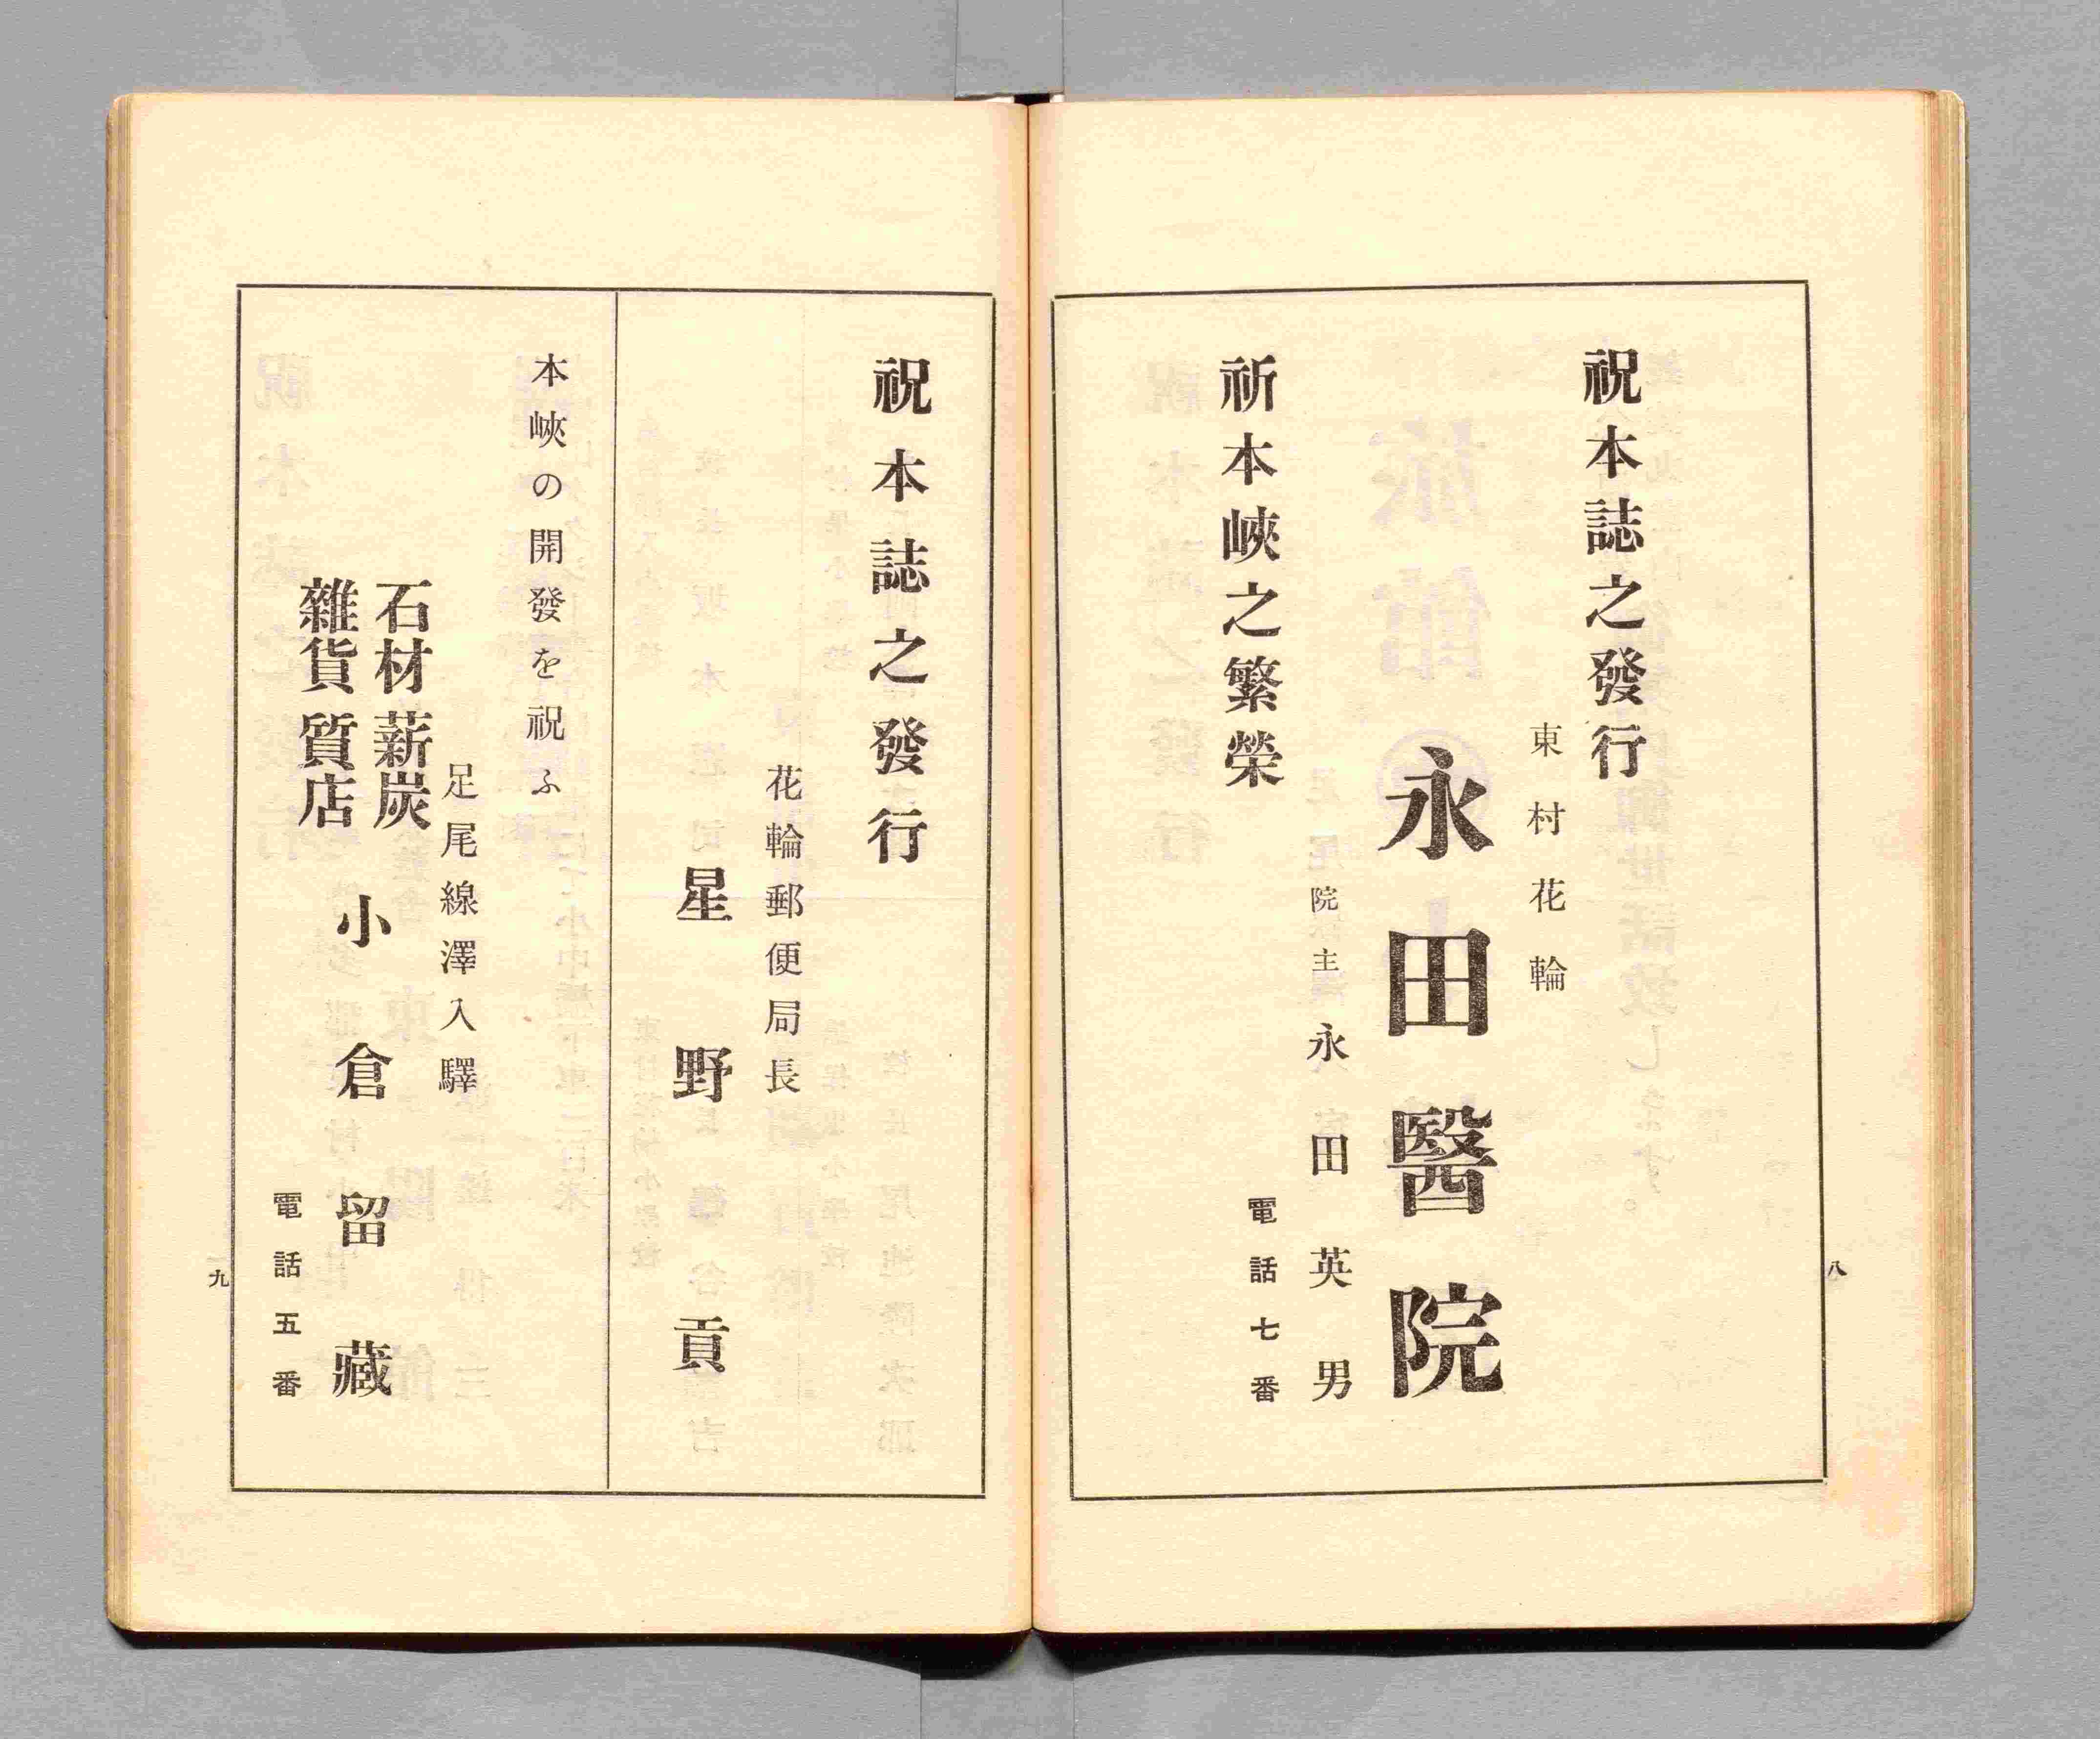 祝本誌之發行
東村花輪
永田醫院
院主 永田英男
電話七番
祈本峽之繁榮
八
祝本誌之發行
花輪郵便局長
星野貢
本峽の開發を祝ふ
足尾線澤入驛
石材 薪炭
雜貨 質店
小倉留藏
電話五番
九